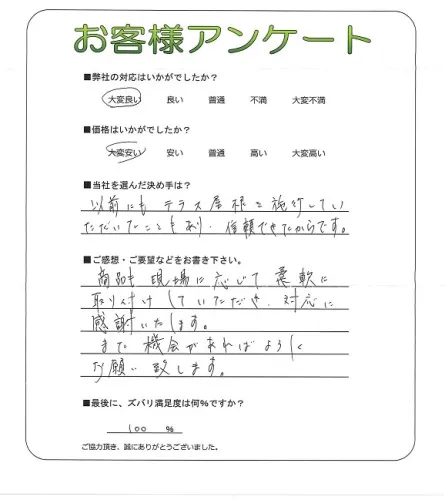 お客様アンケート
■弊社の対応はいかがでしたか?
大変良い 良い 普通 不満 大変不満
■価格はいかがでしたか?
大変安い 安い 普通 高い 大変高い
■当社を選んだ決め手は?
以前にも テラス屋根を施行してい
ただいたこともあり、信頼できたからです。
■ご感想・ご要望などをお書き下さい。
商品も 現場に応じて 柔軟に
取り付けしていただき、対応に
感謝いたします。
また 機会があればよろしく
お願い致します。
■最後に、ズバリ満足度は何%ですか?
100 %
ご協力頂き、誠にありがとうございました。